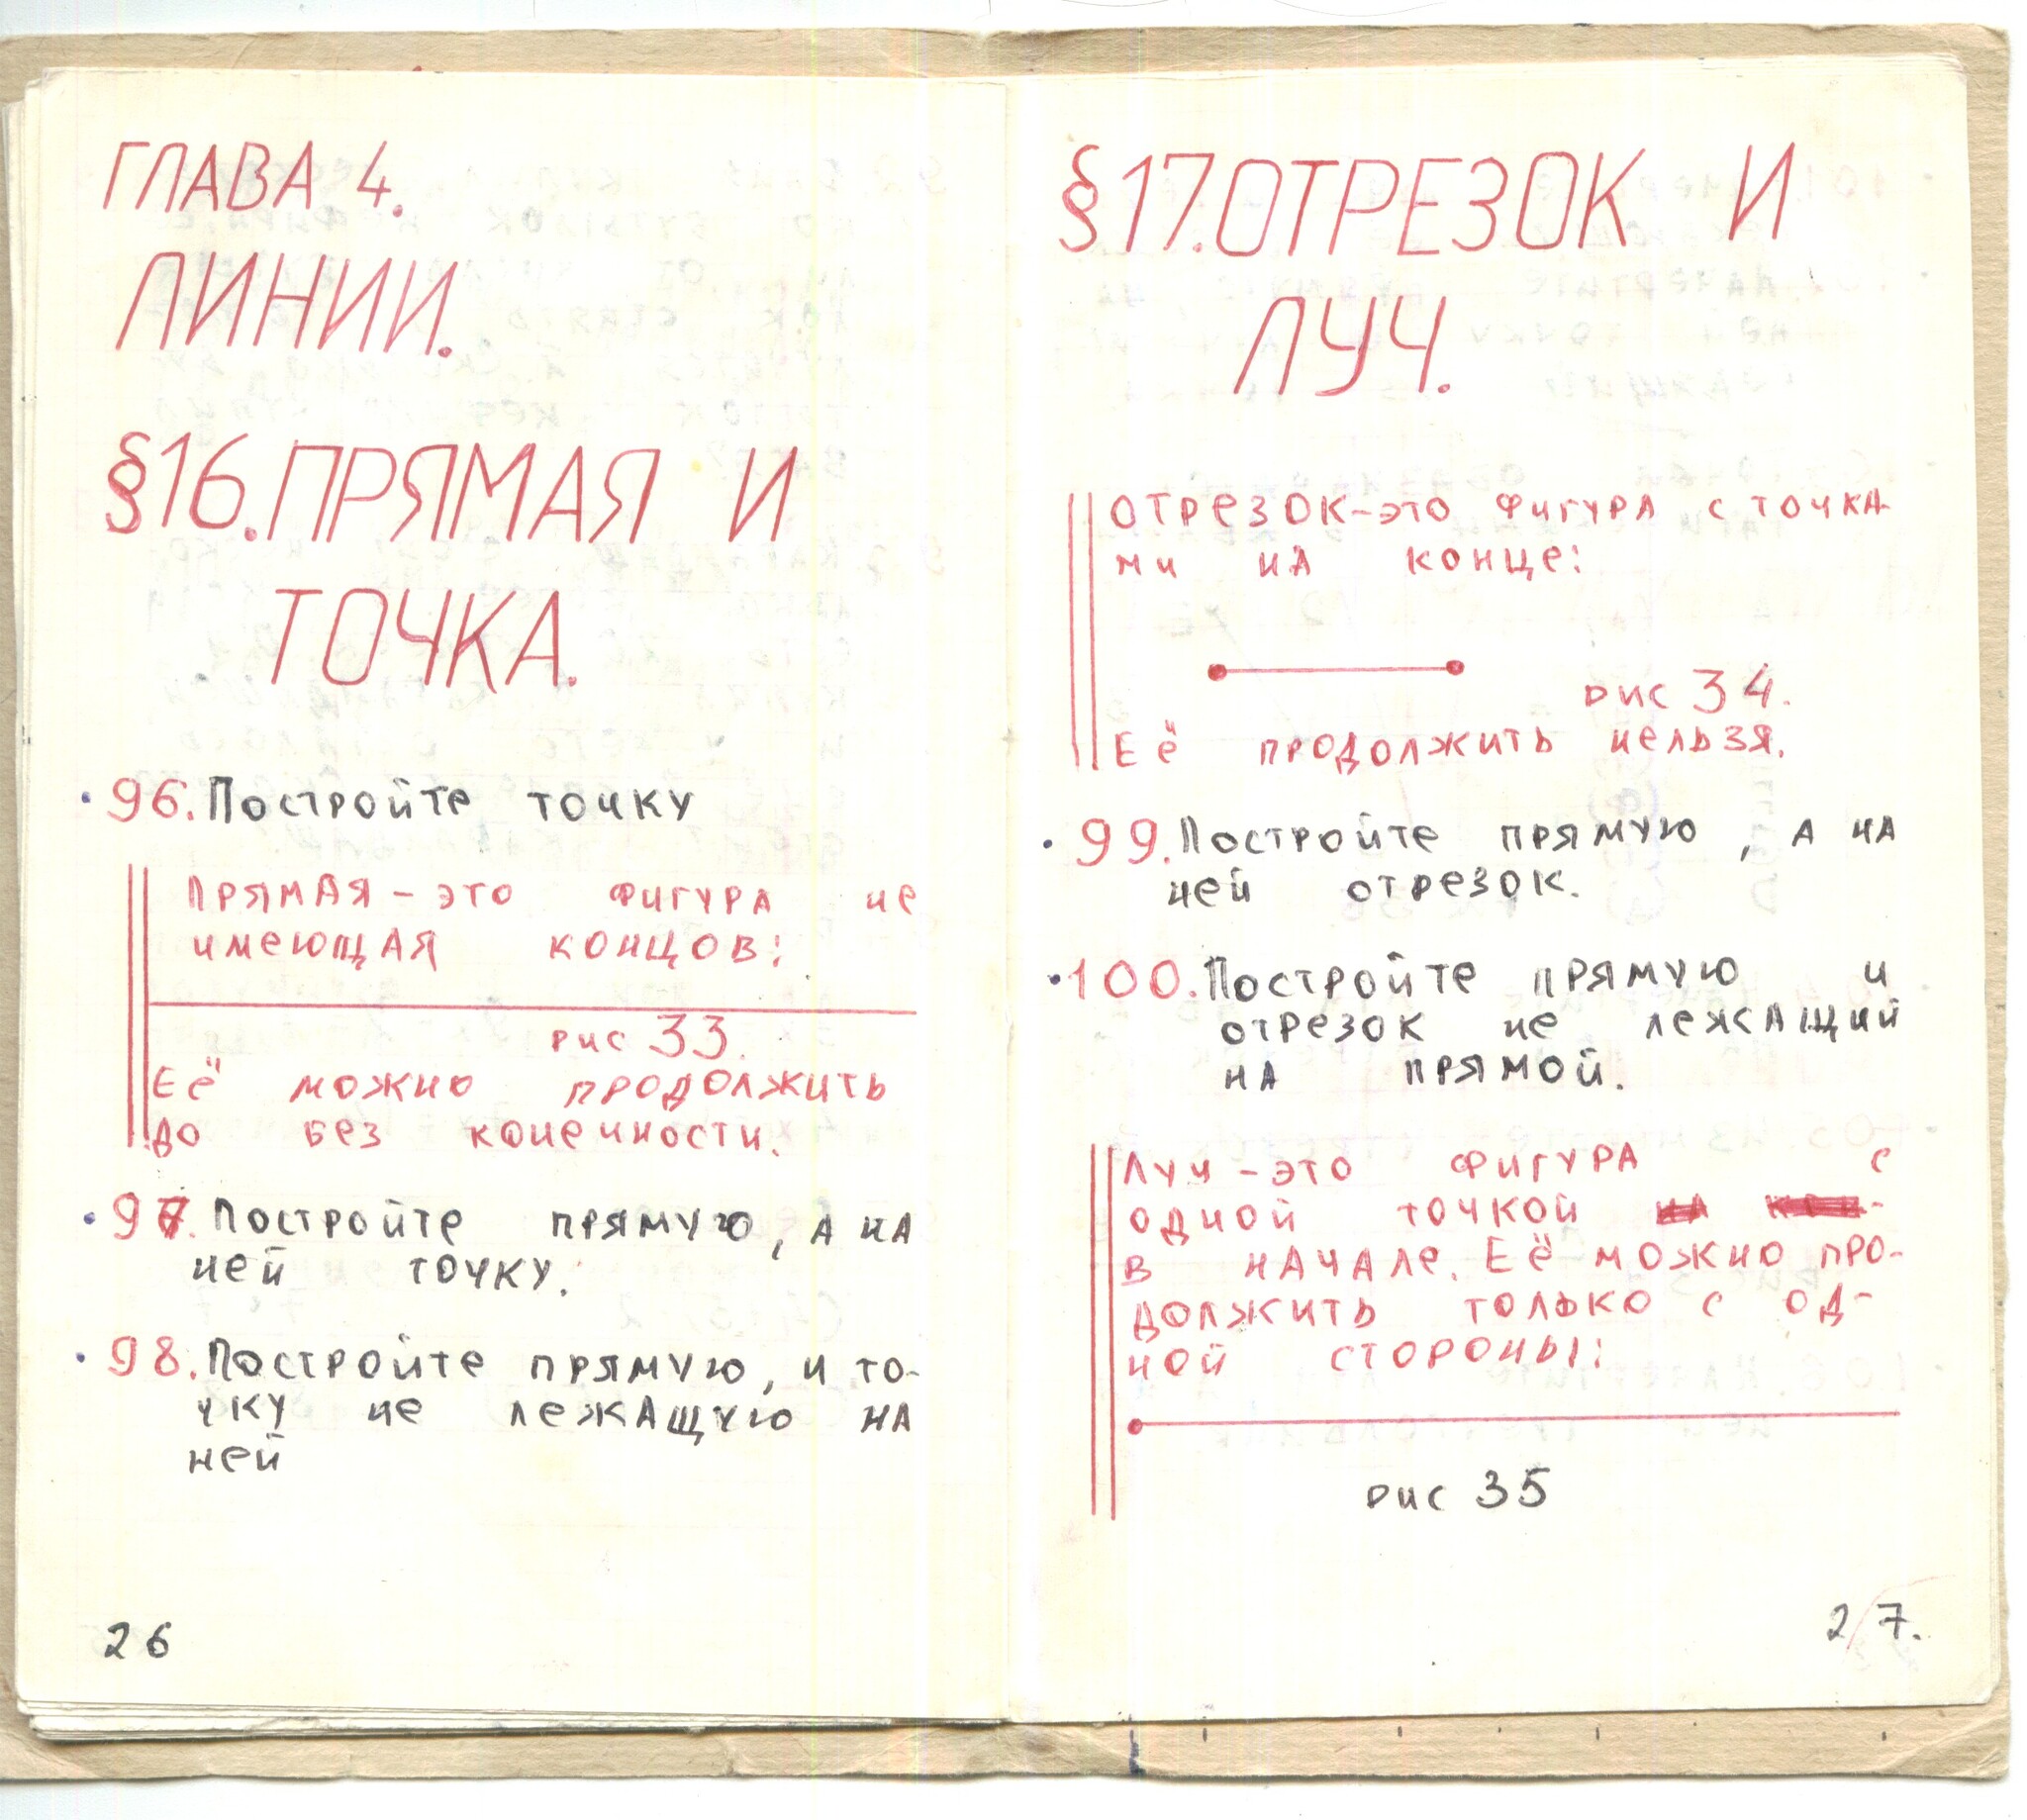 ГЛАВА 4.
ЛИНИИ.
§16.ПРЯМАЯ И
ТОЧКА.
·96.Постройте точку
Прямая – это фигура не
имеющая концов:
рис 33.
Её можно продолжить
до без конечности.
·97.Постройте прямую, а на
ней точку.
·98.Постройте прямую, и то-
чку не лежащую на
ней
26
§17.ОТРЕЗОК И
ЛУЧ.
Отрезок–это фигура с точка-
ми на конце:
рис 34.
Её продолжить нельзя.
·99.Постройте прямую, а на
ней отрезок.
·100.Постройте прямую и
отрезок не лежащий
на прямой.
Луч–это фигура с
одной точкой
в начале. Её можно про-
должить только с од-
ной стороны:
рис 35
27.